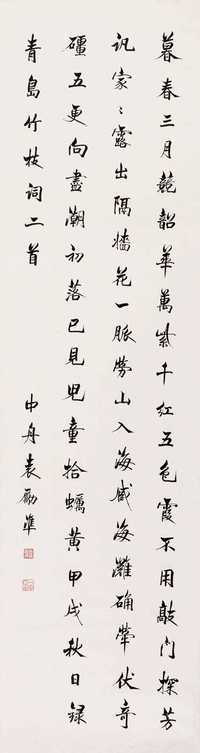 暮春三月競韶華萬紫千紅五色霞不用敲門探芳
訊家〻露出隔墻花一脈勞山入海臧海灘确犖伏奇
礓五更向盡潮初落已見兒童拾蠣黃甲戌秋日録
青島竹枝詞二首
中舟袁勵準